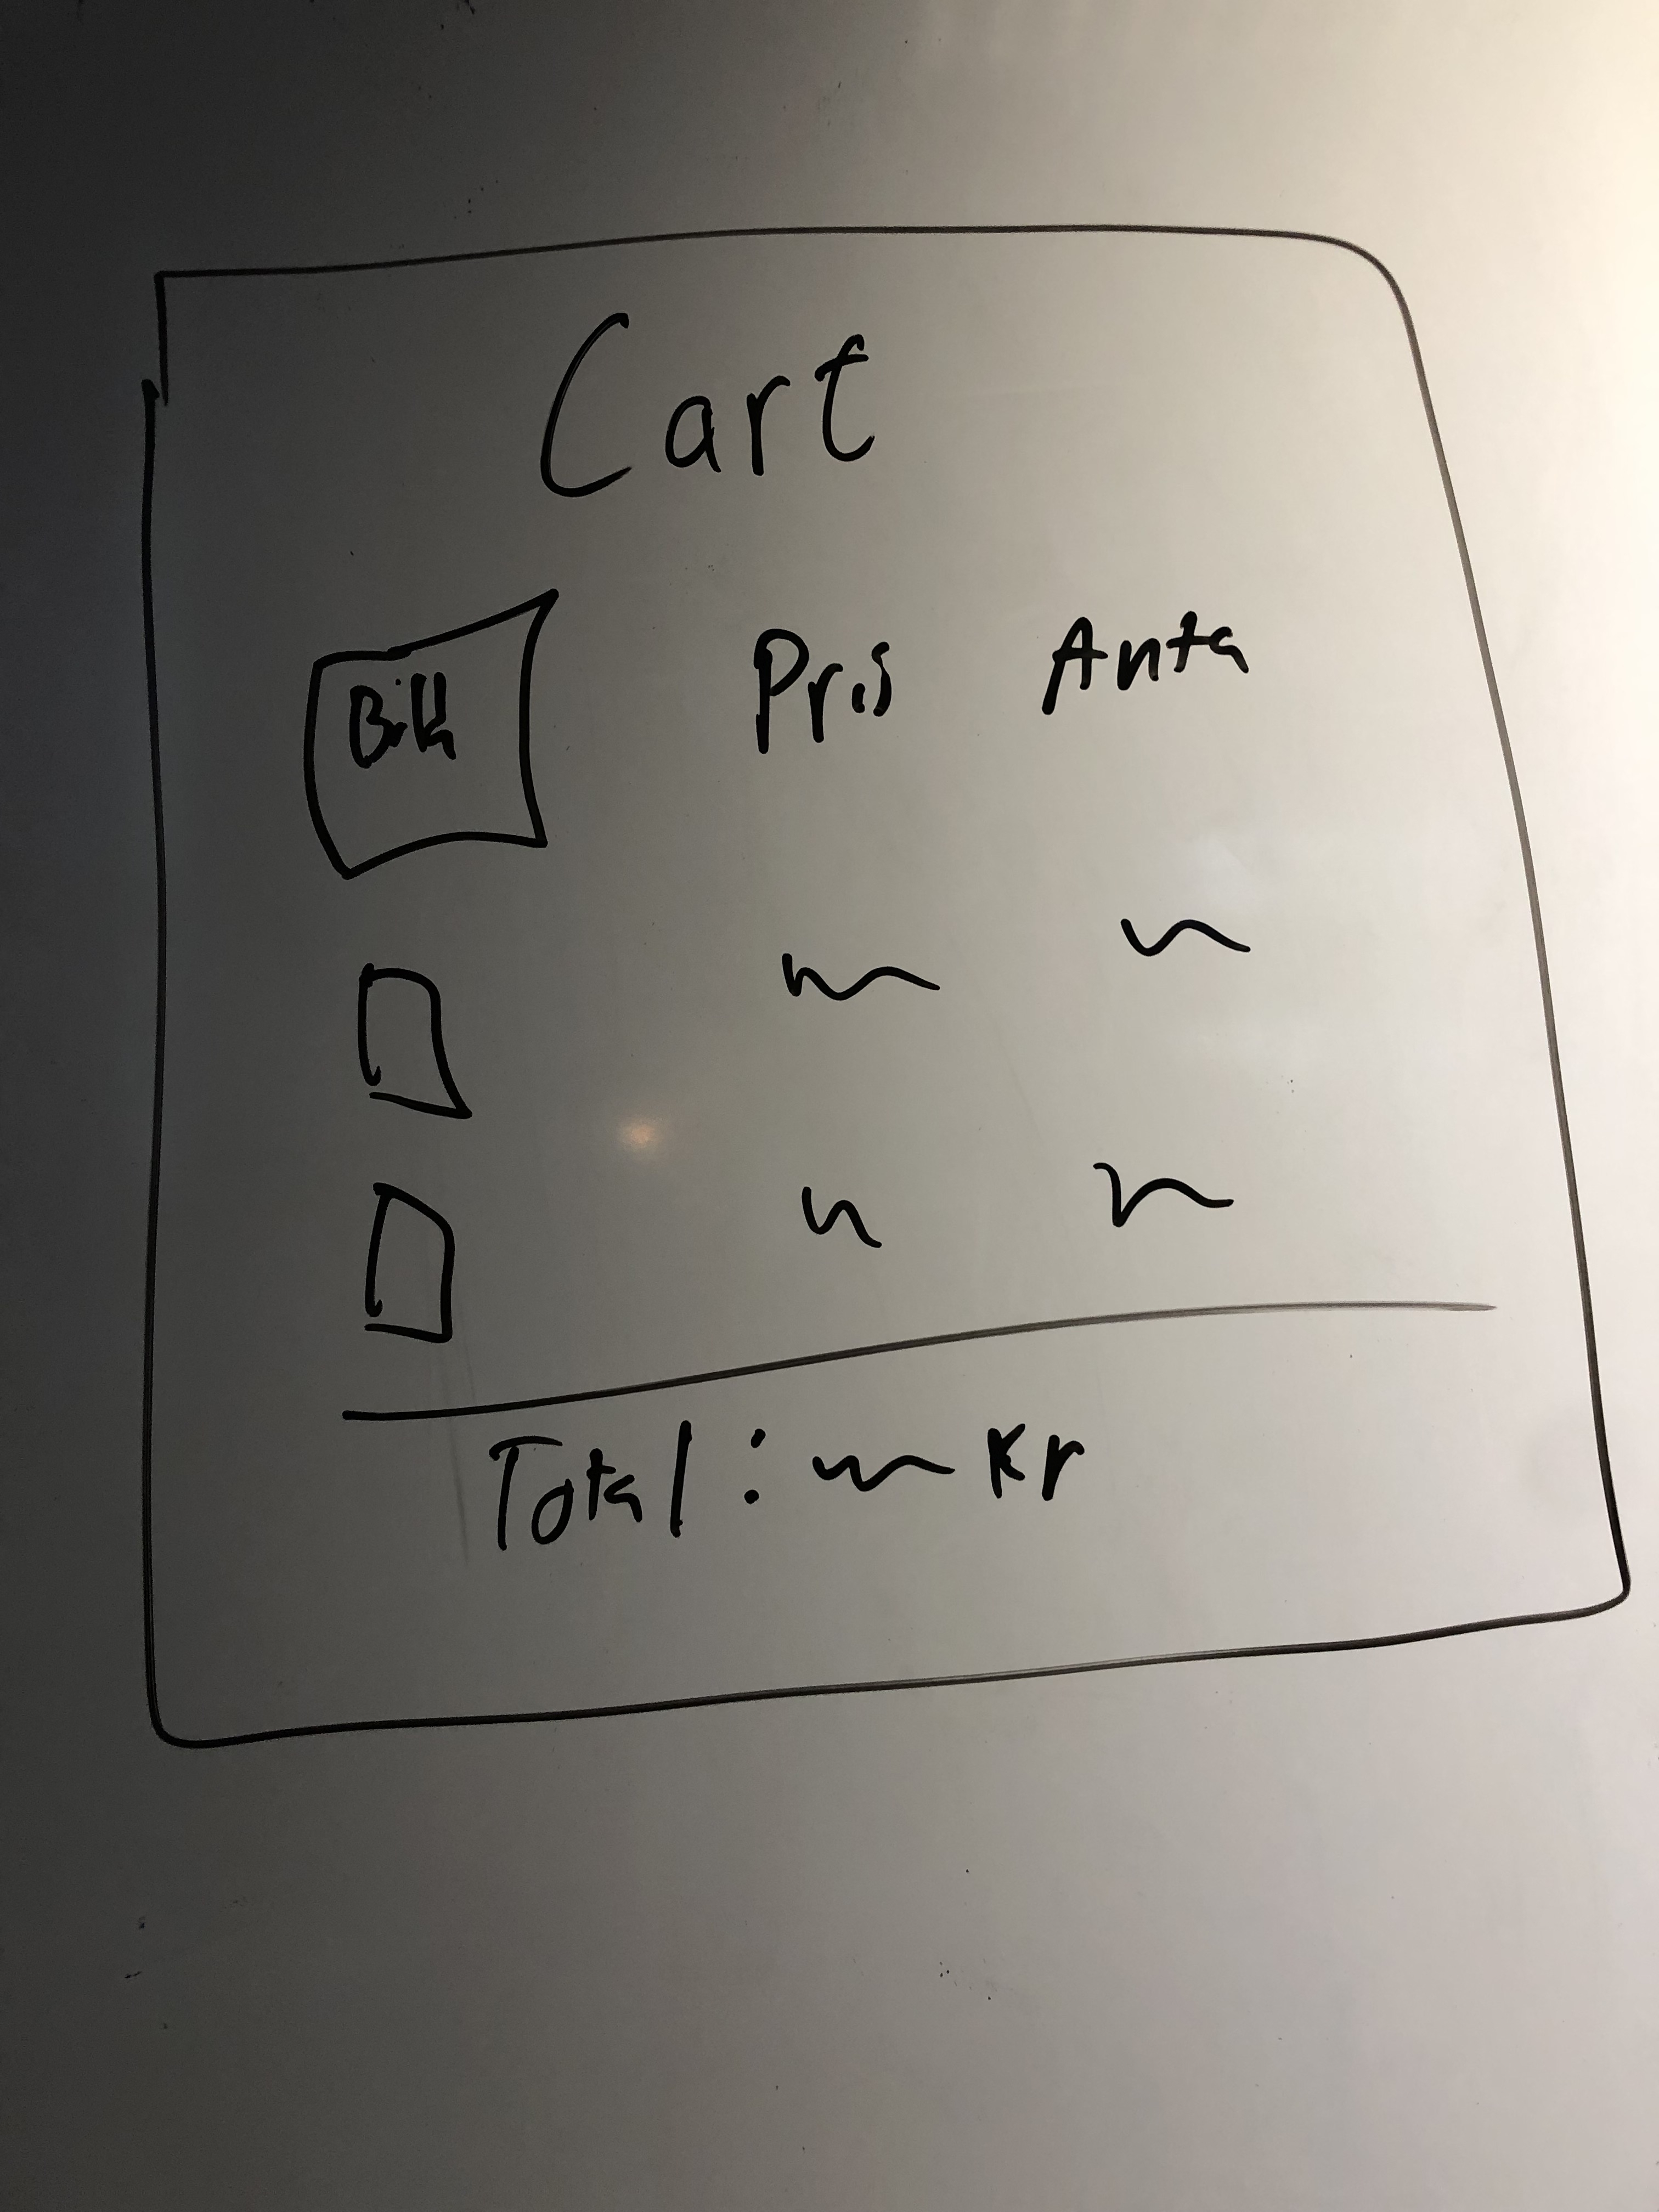 Cart
Pris Anta
Total: Kr